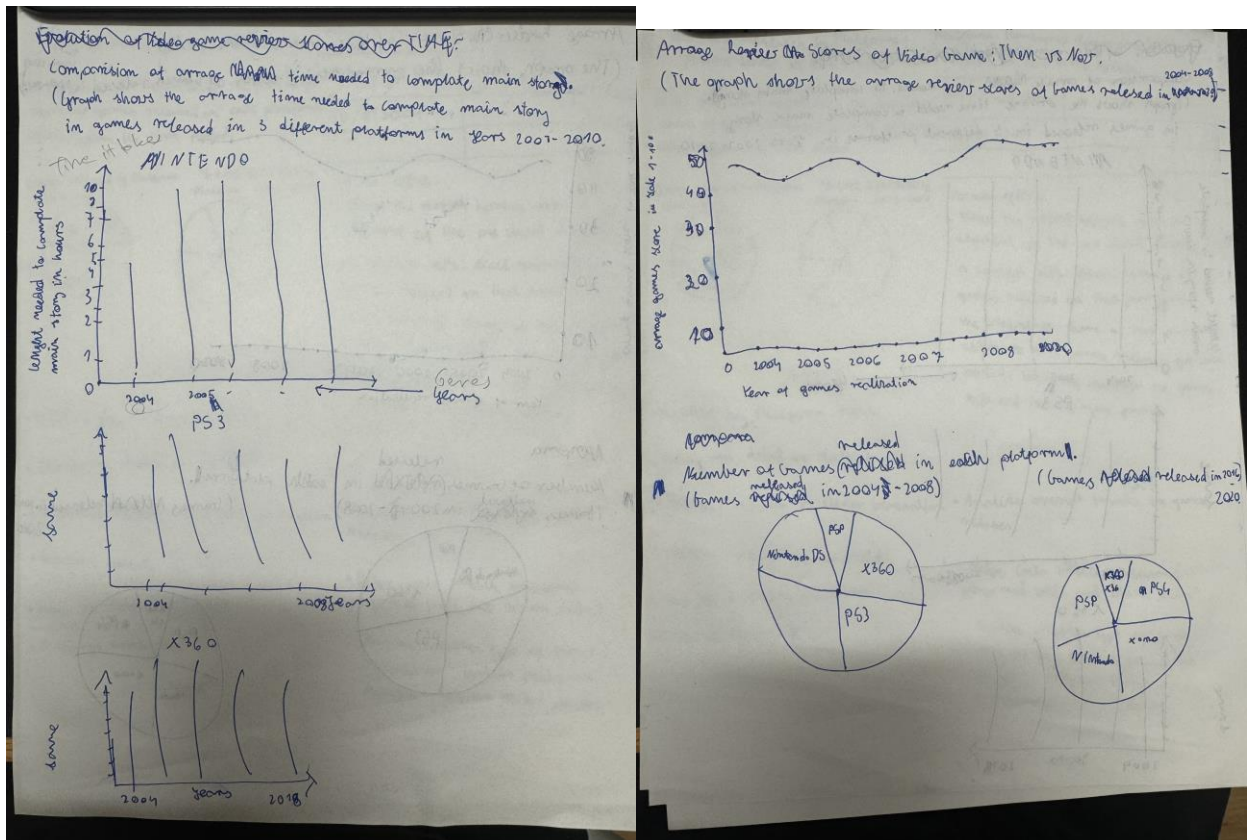 Evolution of Video game review scores over TIME:
Comparision of avrage time needed to complate main story.
(Graph shows the avrage time needed to complrate main story
in games released in 3 different platforms in years 2007-2010.
Time it takes
NINTENDO
lenght needed to complate
main story in hours
10
9
7
6
5
4
3
2
1
0
2004
2005
Genres
years
PS3
same
2004
2008
years
X360
same
2004
years
2018
Avrage Review Scores of Video Game: Then vs Now.
2004-2008
(The graph shows the avrage review scores of Games relesed in
avrage games score in scale 1-100
50
40
30
20
10
0 2004 2005 2006 2007 2008
Year of games realization
released
Number of Games in each platform.
(Games released in 2004-2008)
(Games released in
2020.
PSP
Nintendo DS
X360
PS3
PSP
PS4
Nintendo